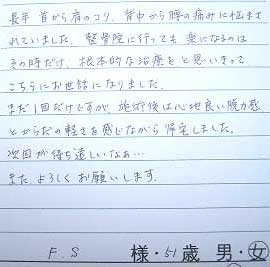 長年 首から肩のコリ、背中から腰の痛みに悩ま
されていました。整骨院に行っても楽になるのは
その時だけ、根本的な治療をと思いきって
こちらにお世話になりました。
まだ1回だけですが、施術後は心地良い脱力感
とからだの軽さを感じながら帰宅しました。
次回が待ち遠しいなぁ…
また、よろしくお願いします。
F.S 様・51歳 男・女